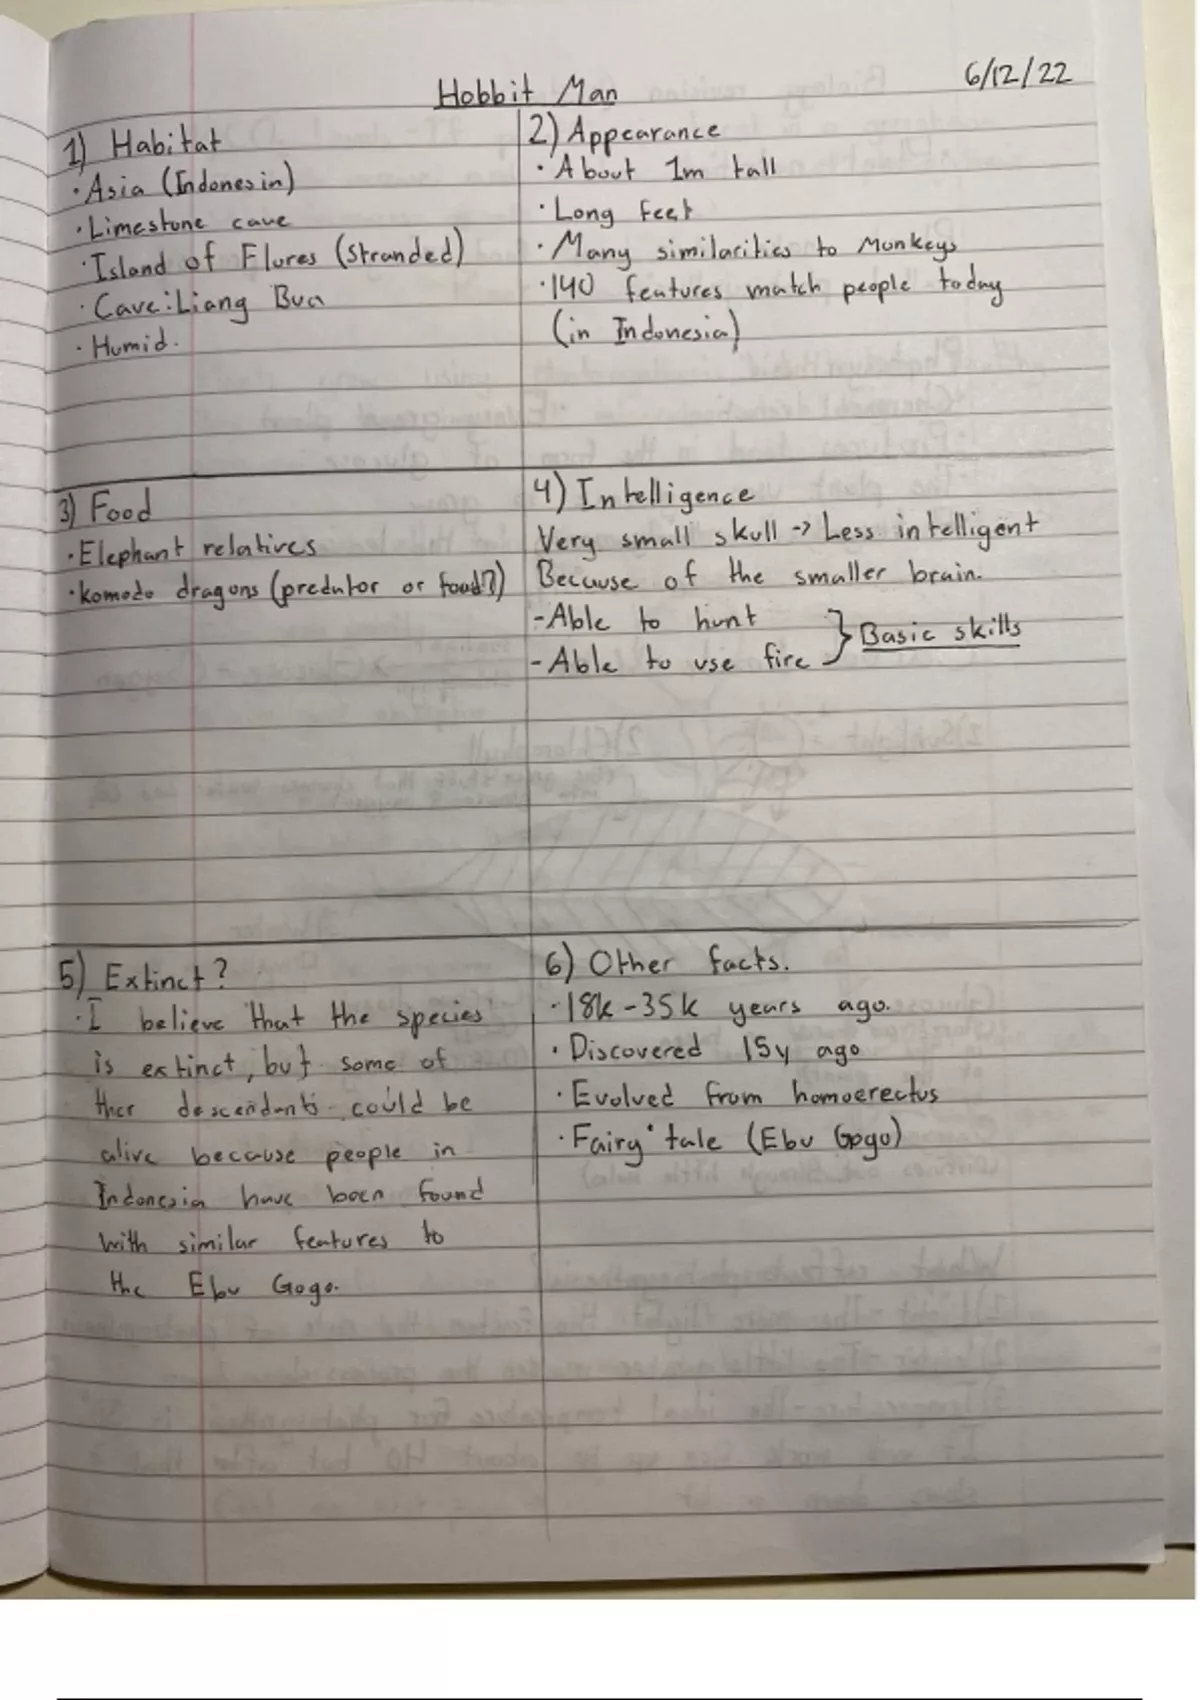 Hobbit Man
6/12/22
1) Habitat
· Asia (Indonesia)
· Limestone cave
· Island of Flores (Stranded)
· Cave: Liang Bua
· Humid.
2) Appearance
· About 1m tall
· Long feet
· Many similarities to Monkeys
· 140 features match people today
(in Indonesia)
3) Food
· Elephant relatives
· komodo dragons (predator or food?)
4) Intelligence
Very small skull -> Less intelligent
Because of the smaller brain.
- Able to hunt
- Able to use fire } Basic skills
5) Extinct?
· I believe that the species
is extinct, but some of
ther descendants could be
alive because people in
Indonesia have been found
with similar features to
the Ebu Gogo.
6) Other facts.
· 18k - 35k years ago.
· Discovered 15y ago
· Evolved from homoerectus
· Fairy tale (Ebu Gogo)